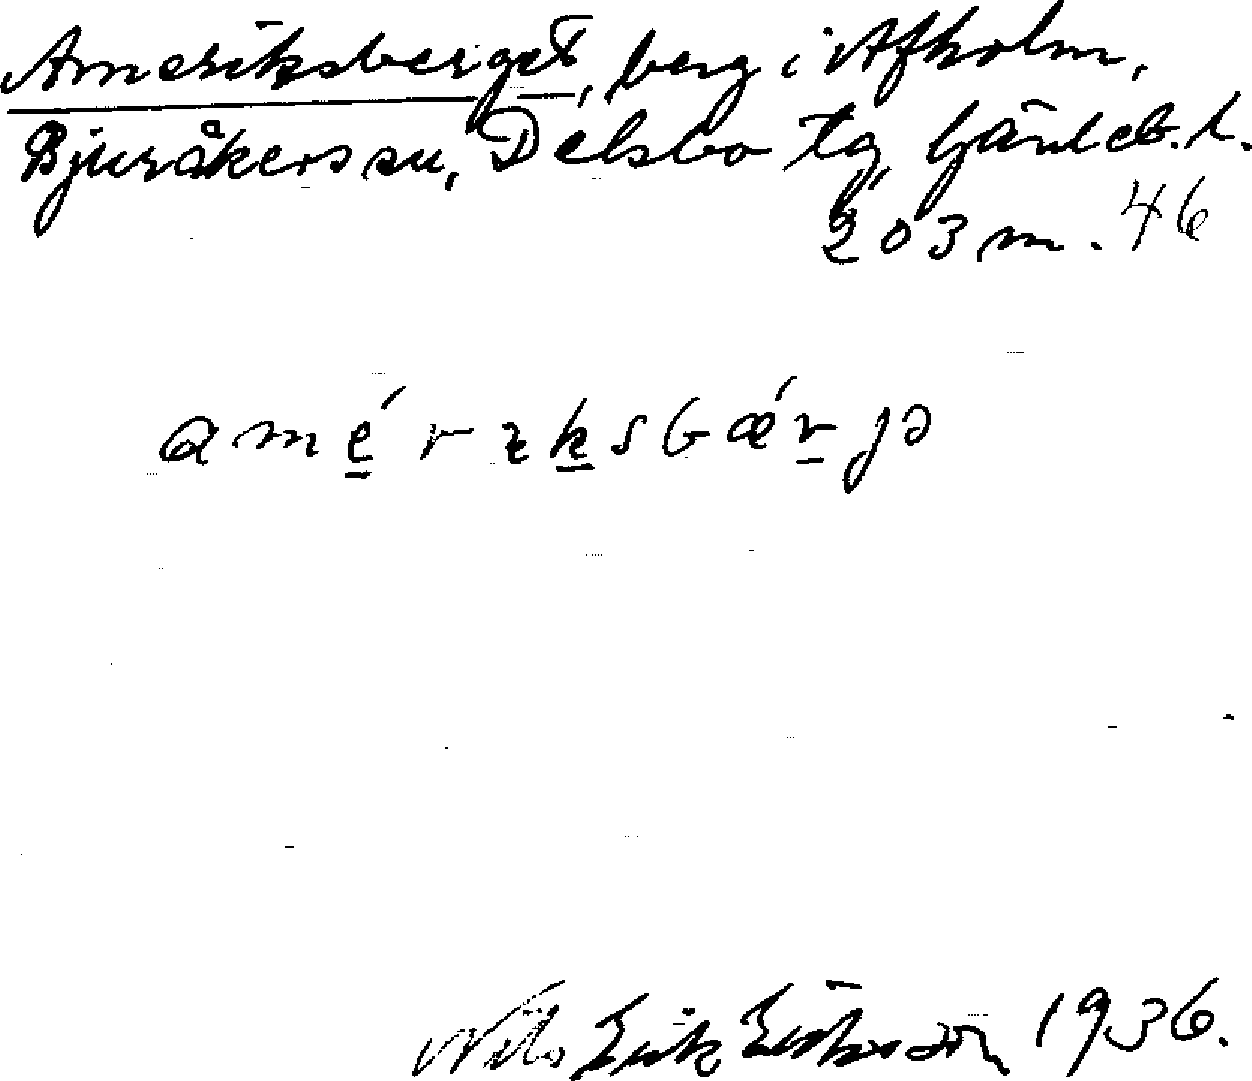 Ameriksberget, berg i Afholm,
Bjuråkers sn, Delsbo tg, Gävleb. l.
203 m. 46
amérɩksbǽrjə
Nils Erik Eriksson 1936.